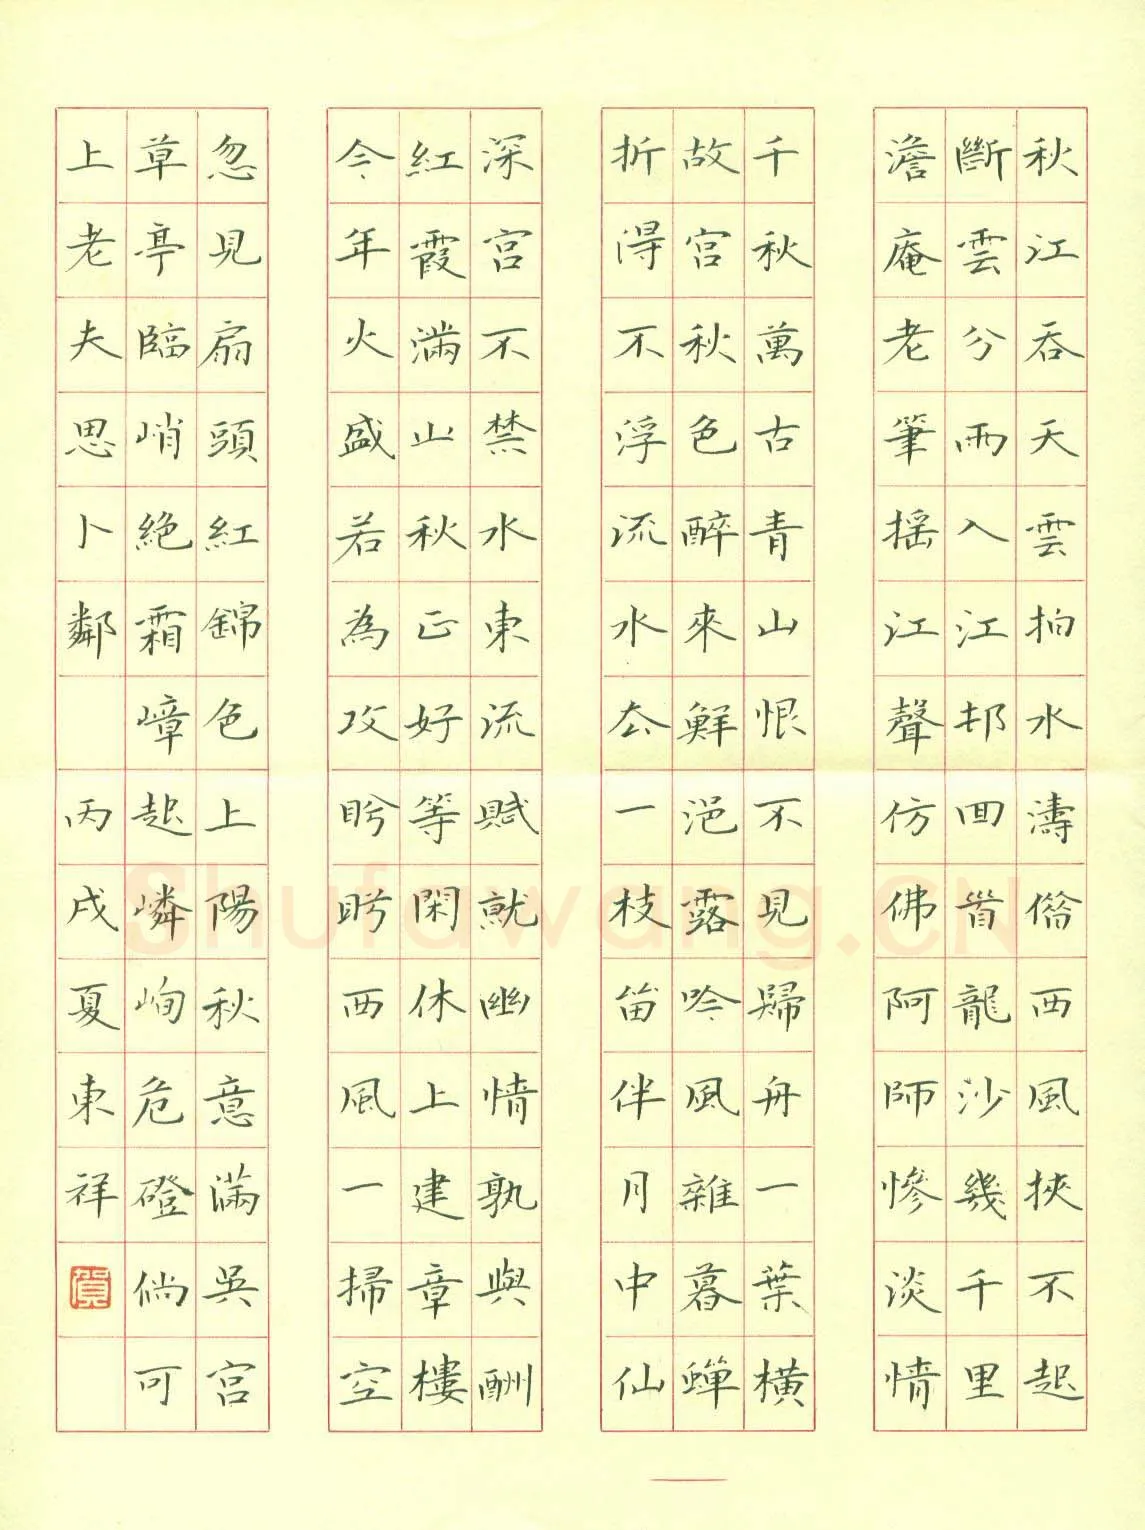 秋江吞天雲拍水濤借西風挾不起
斷雲分雨入江邨回首龍沙幾千里
澹庵老筆搖江聲仿佛阿師慘淡情
千秋萬古青山恨不見歸舟一葉橫
故宮秋色醉來鮮浥露吟風雜暮蟬
折得不浮流水去一枝笛伴月中仙
深宮不禁水東流賦就幽情孰與酬
紅霞滿山秋正好等閑休上建章樓
今年火盛若為攻盻盻西風一掃空
忽見扇頭紅錦色上陽秋意滿吳宮
草亭臨峭絕霜嶂起嶙峋危磴倘可
上老夫思卜鄰 丙戌夏東祥
賀
Shufawang.CN